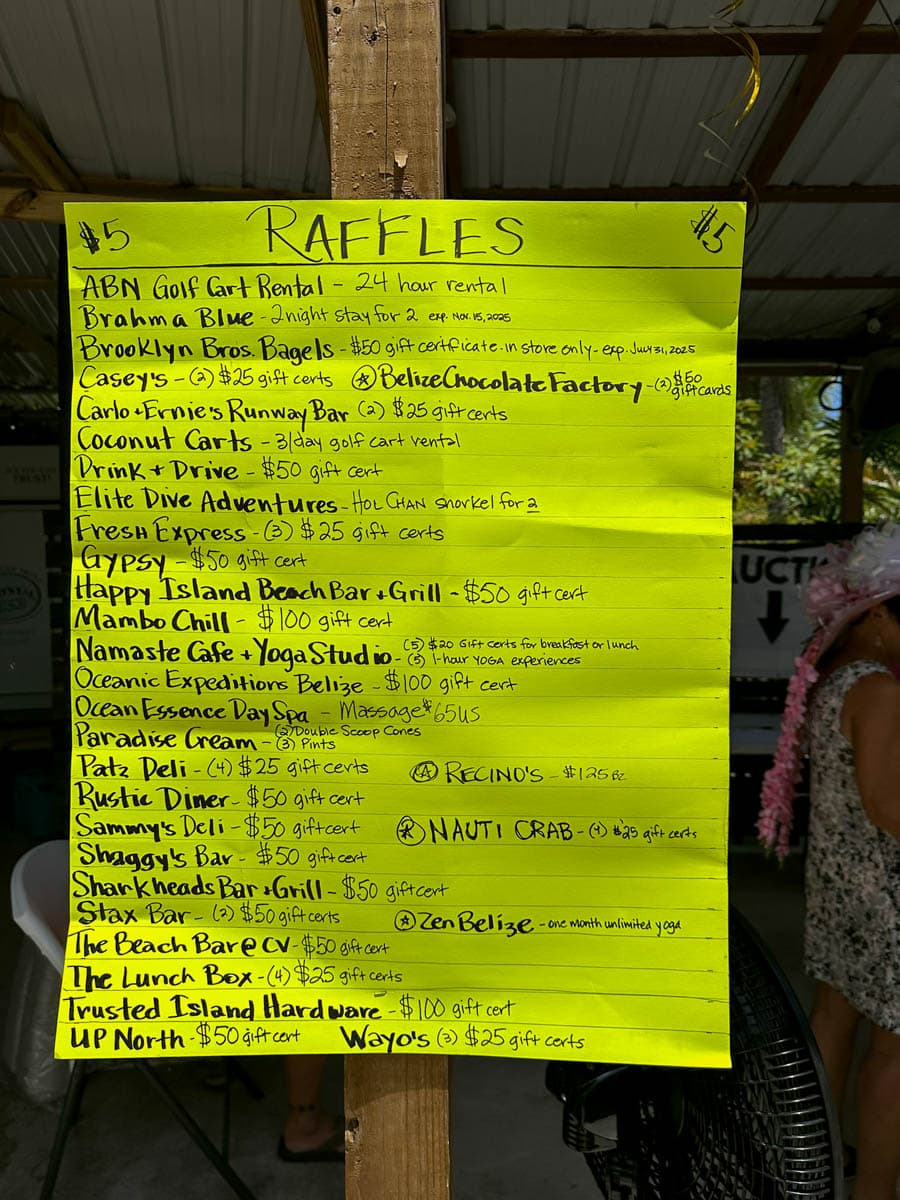 $5 RAFFLES $5
ABN Golf Cart Rental - 24 hour rental
Brahma Blue - 2 night stay for 2 exp. Nov. 15, 2025
Brooklyn Bros. Bagels - $50 gift certficate - in store only - exp. July 31, 2025
Casey's - (2) $25 gift certs Belize Chocolate Factory - (2) $50 gift cards
Carlo + Ernie's Runway Bar (2) $25 gift certs
Coconut Carts - 3/day golf cart rental
Drink + Drive - $50 gift cert
Elite Dive Adventures - HOL CHAN snorkel for 2
Fresh Express - (3) $25 gift certs
Gypsy - $50 gift cert
Happy Island Beach Bar + Grill - $50 gift cert
Mambo Chill - $100 gift cert
Namaste Cafe + Yoga Studio - (5) $20 Gift certs for breakfast or lunch
(5) 1-hour YOGA experiences
Oceanic Expeditions Belize - $100 gift cert
Ocean Essence Day Spa - Massage $65US
Paradise Cream - (2) Double Scoop Cones
(3) Pints
Patz Deli - (4) $25 gift certs RECINO'S - $125 BZ
Rustic Diner - $50 gift cert
Sammy's Deli - $50 gift cert NAUTI CRAB - (4) $25 gift certs
Shaggy's Bar - $50 gift cert
Sharkheads Bar + Grill - $50 gift cert
Stax Bar - (2) $50 gift certs Zen Belize - one month unlimited yoga
The Beach Bar @ CV - $50 gift cert
The Lunch Box - (4) $25 gift certs
Trusted Island Hardware - $100 gift cert
UP North - $50 gift cert Wayo's (3) $25 gift certs
UCTI